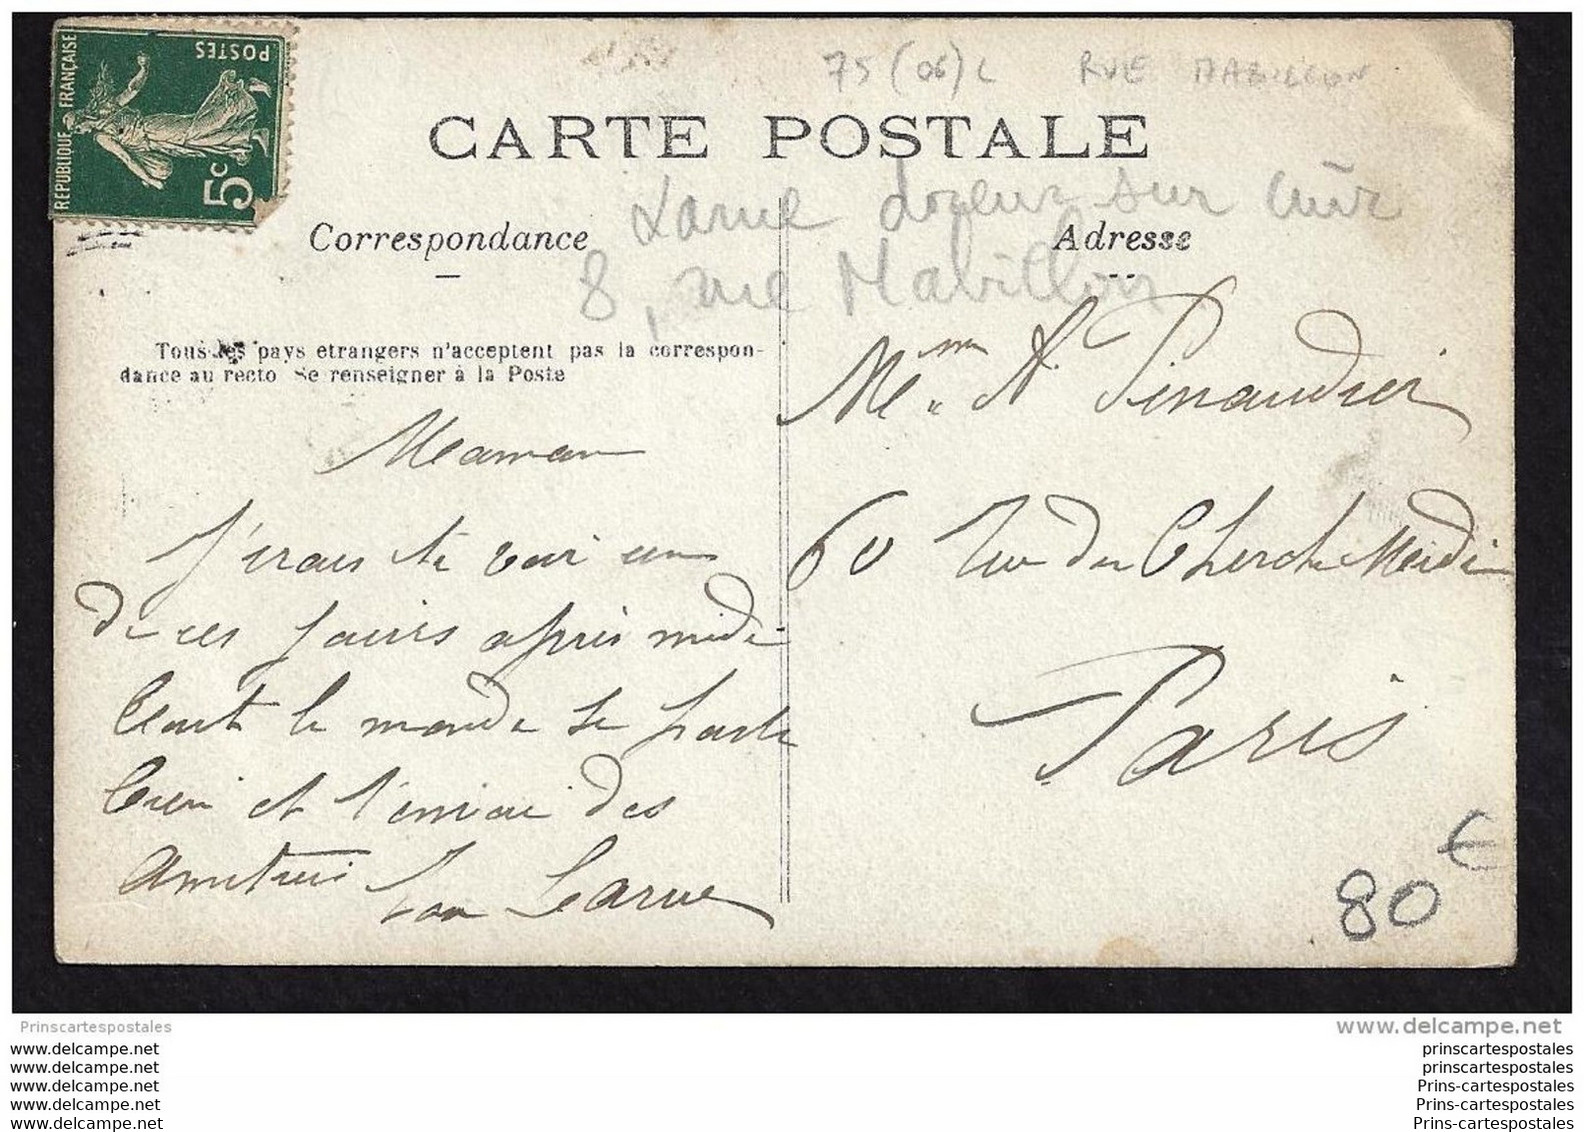 75 (06) L RUE MABILLON
REPUBLIQUE FRANÇAISE
POSTES
5c
CARTE POSTALE
Larue doreur sur cuir
8, rue Mabillon
Correspondance
Adresse
Tous les pays etrangers n'acceptent pas la correspon-
dance au recto Se renseigner à la Poste
Maman
J'irais te voir un
de ces jours après midi
tout le monde se porte
bien et t'envoie des
amitiés Ton Larue
Mme A Pinaudier
60 rue du Cherche Midi
Paris
80 €
Prinscartespostales
www.delcampe.net
www.delcampe.net
www.delcampe.net
www.delcampe.net
www.delcampe.net
www.delcampe.net
prinscartespostales
prinscartespostales
Prins-cartespostales
Prins-cartespostales
Prins-cartespostales